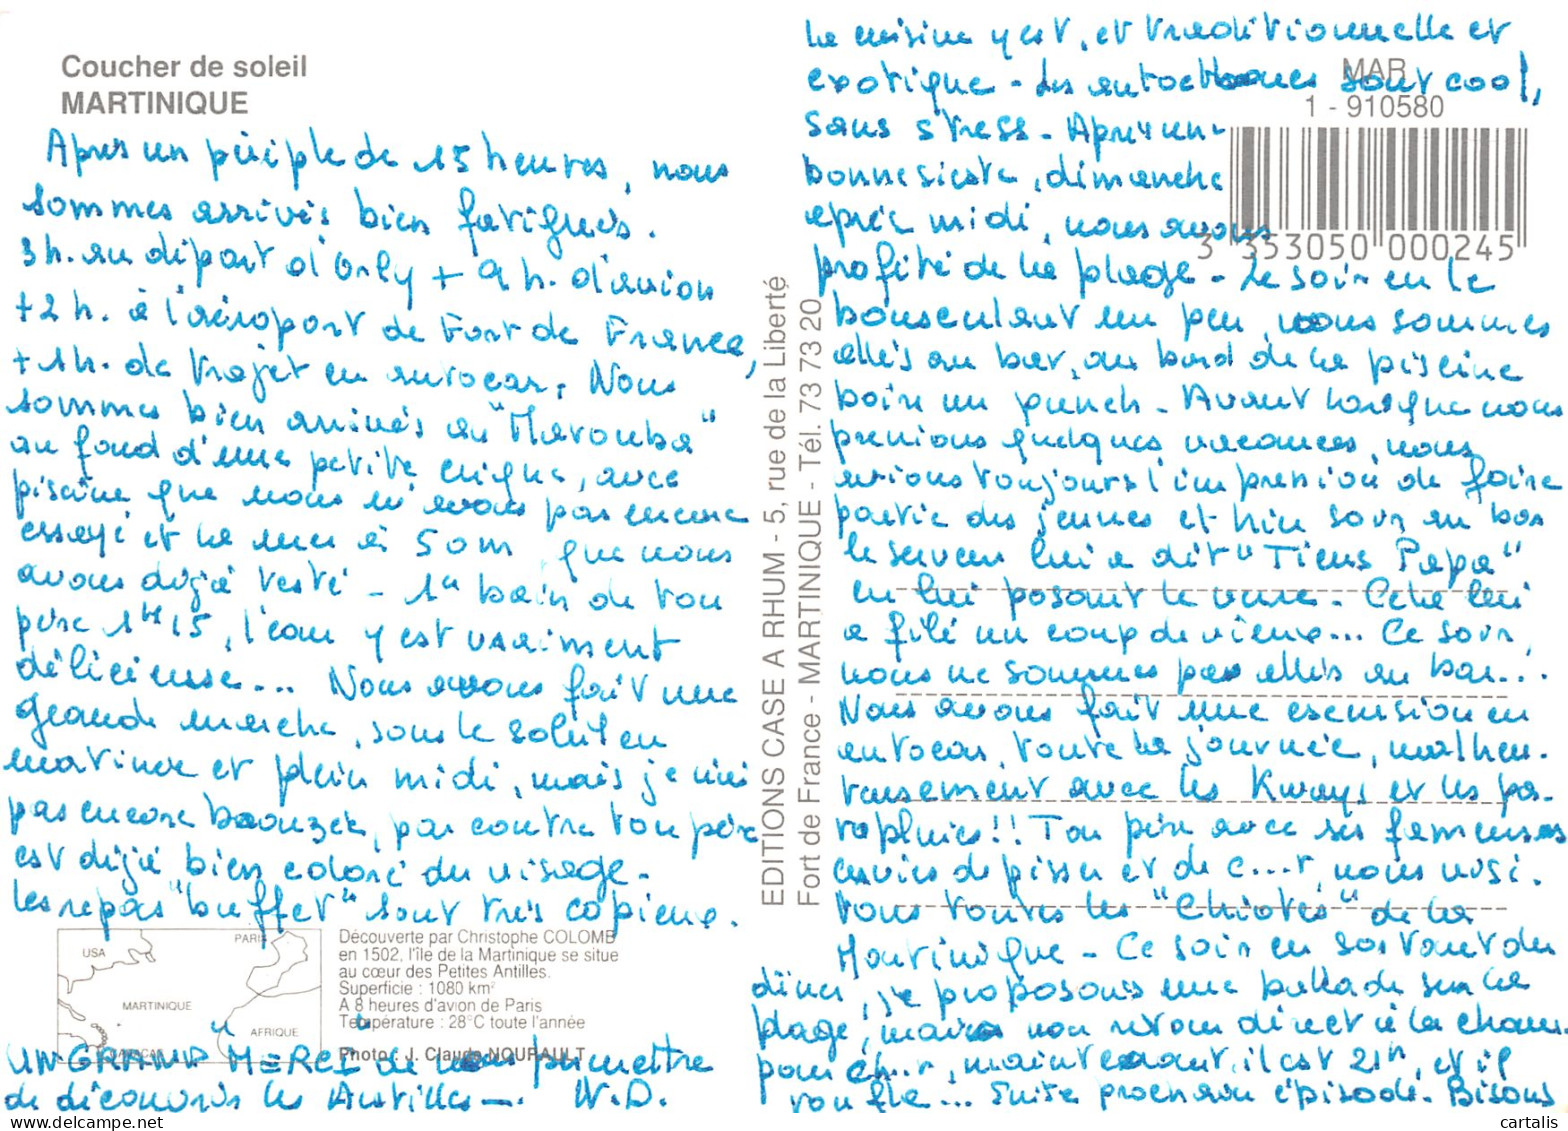 Coucher de soleil
MARTINIQUE
Après un périple de 15 heures, nous
sommes arrivés bien fatigués.
3h. au départ d'Orly + 9h. d'avion
+2h. à l'aéroport de Fort de France,
+1h. de trajet en autocar. Nous
sommes bien arrivés au "Marouba"
au fond d'une petite crique, avec
piscine que nous n'avons pas encore
essayé et la mer à 50m que nous
avons déjà testé - 1er bain de ton
père 1H15, l'eau y est vraiment
délicieuse... Nous avons fait une
grande marche, sous le soleil en
matinée et plein midi, mais je suis
pas encore bronzée, par contre ton père
est déjà bien coloré du visage.
les repas "buffet" sont très copieux.
USA
PARIS
MARTINIQUE
AFRIQUE
CARACAS
Découverte par Christophe COLOMB
en 1502, l'île de la Martinique se situe
au cœur des Petites Antilles.
Superficie : 1080 km²
A 8 heures d'avion de Paris
Température : 28°C toute l'année
Photo : J. Claude NOURAULT
UN GRAND "MERCI" de nous permettre
de découvrir les Antilles -. N.D.
EDITIONS CASE A RHUM - 5, rue de la Liberté
Fort de France - MARTINIQUE - Tél. 73 73 20
MAR
1 - 910580
3 353050 000245
La cuisine y est, et traditionnelle et
exotique - Les autochtones sont cool,
sans stress - Après une
bonne sieste, dimanche
après midi, nous avons
profité de la plage - Le soir en le
bousculant un peu, nous sommes
allés au bar, au bord de la piscine
boire un punch - Avant lorsque nous
prenions quelques vacances, nous
avions toujours l'impression de faire
partie des jeunes et hier soir au bar
le serveur lui a dit "Tiens Papa"
en lui posant le verre. Cela lui
a filé un coup de vieux... Ce soir,
nous ne sommes pas allés au bar...
Nous avons fait une excursion en
autocar, toute la journée, malheu-
reusement avec les Kways et les pa-
rapluies!! Ton père avec ses fameuses
envies de pisser et de c...r, nous visi-
tons toutes les "Chiotes" de la
Martinique - Ce soir en sortant du
dîner, je proposais une ballade sur la
plage, mais non retour direct à la cham
pour ch...r, maintenant, il est 21h, et il
ronfle... Suite prochain épisode. Bisous
cartalis